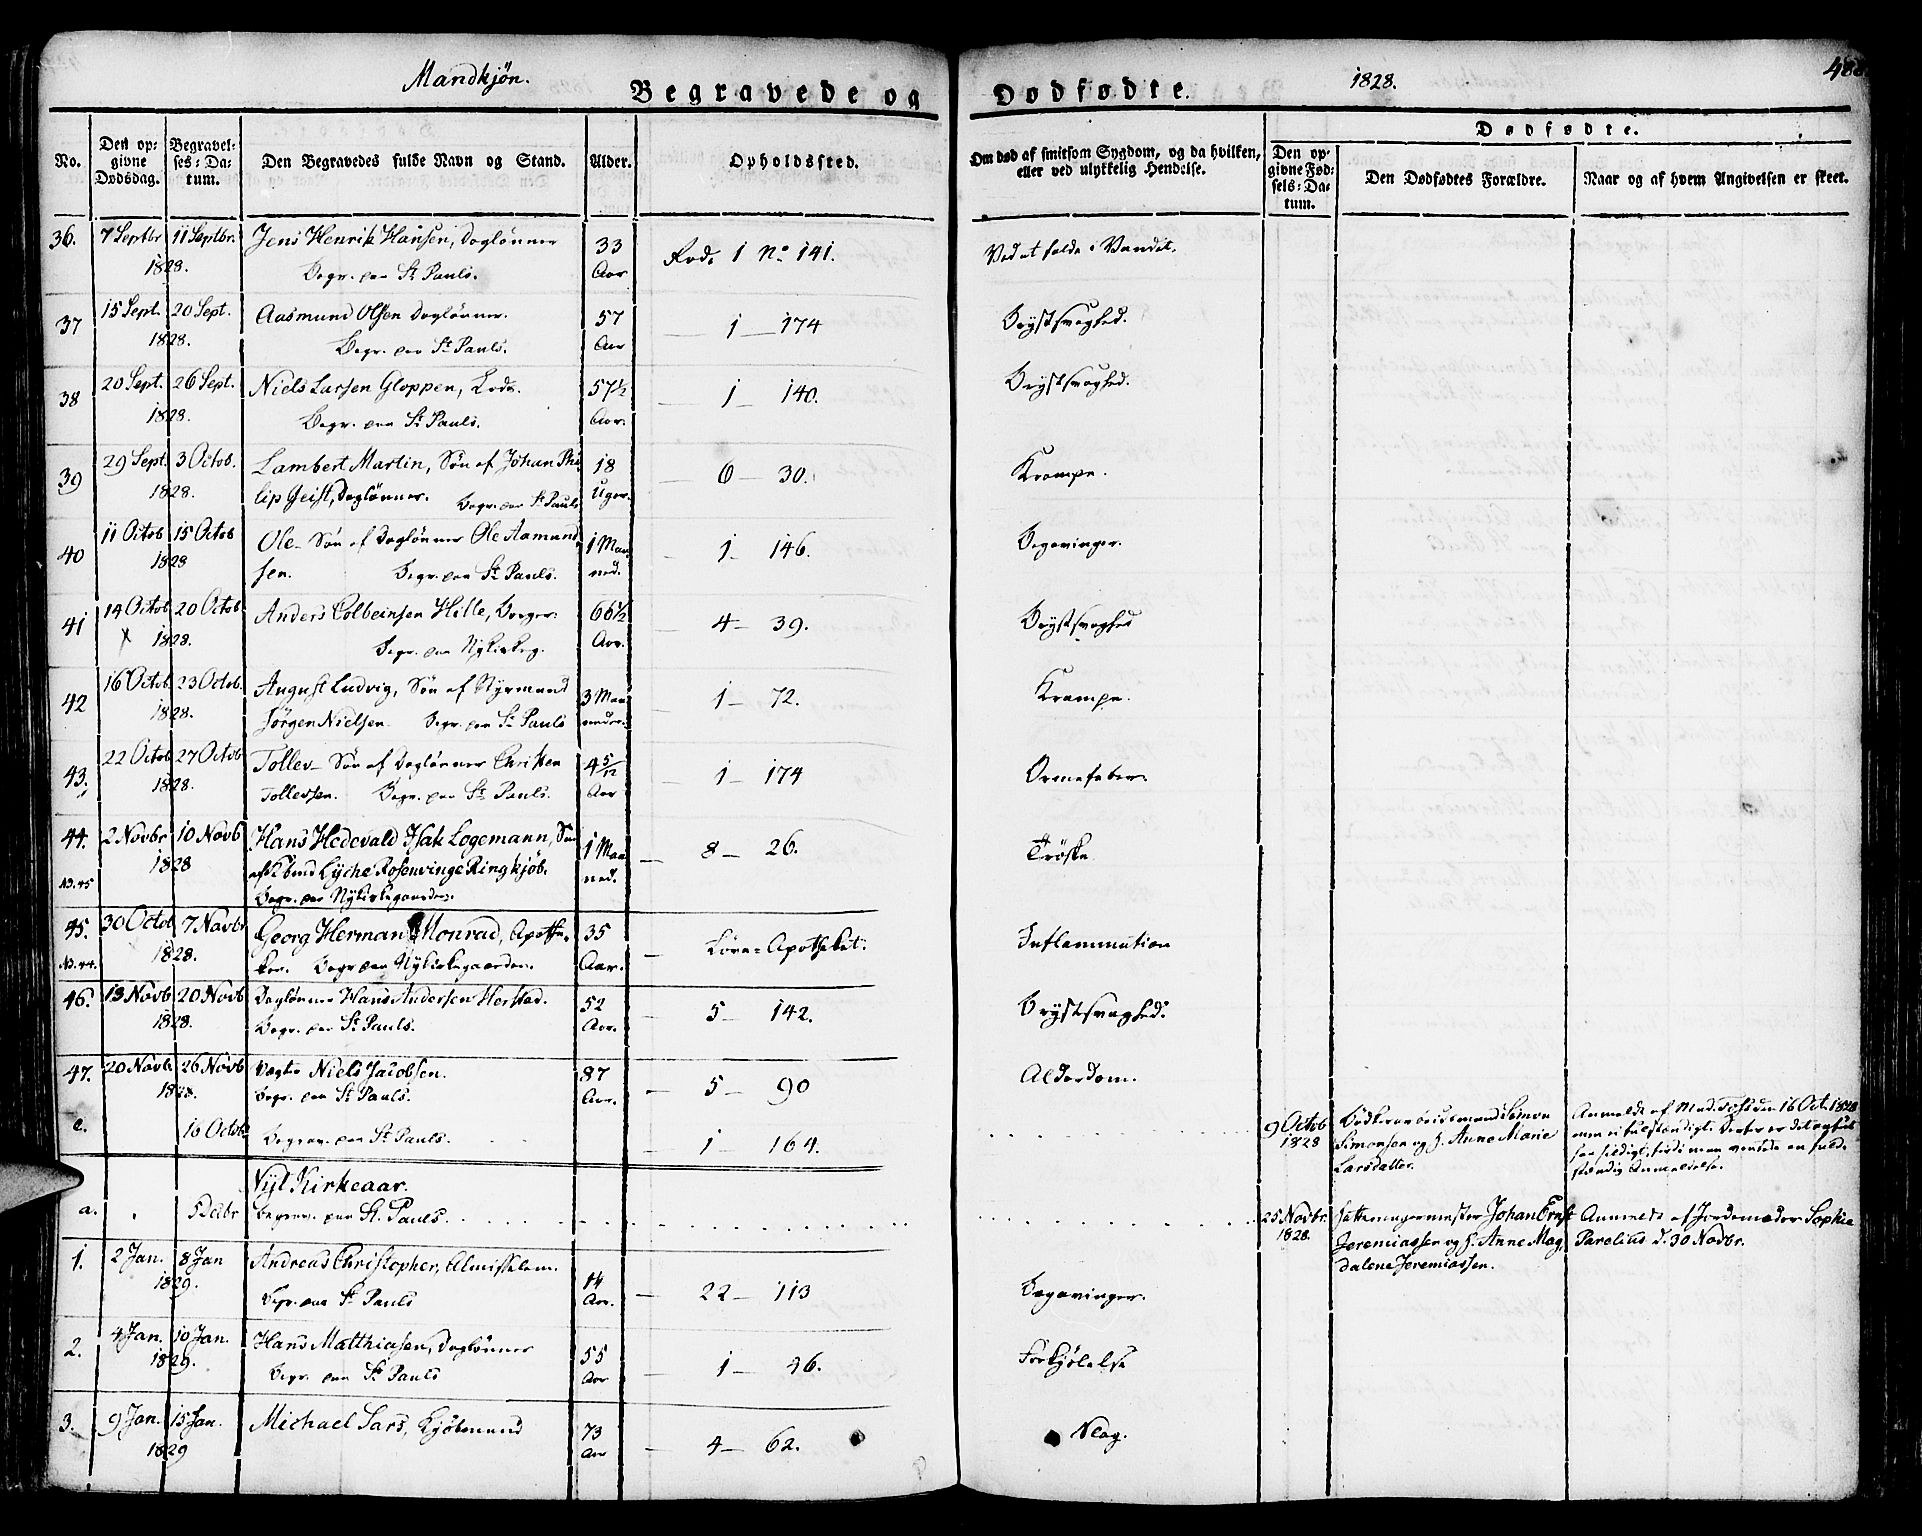 Mandkjøn.
Begravede og
Dødfødte.
1828.
No.
Den opgivne Dødsdag.
Begravelses-Datum.
Den Begravedes fulde Navn og Stand.
Alder.
Opholdssted.
Om død af smitsom Sygdom, og da hvilken, eller ved ulykkelig Hendelse.
Dødfødte.
Den opgivne Fødsels-Datum.
Den Dødfødtes Forældre.
Naar og af hvem Angivelsen er skeet.
36. 7 Septbr 11 Septbr. Jens Henrik Hansen, Daglønner 33 Rode 1 No. 141. Ved at falde i Vandet.
1828. Begr. paa St. Pauls. Aar
37 15 Sept. 20 Sept. Aasmund Olsen Daglønner. 57 — 1 — 174 Brystsvaghed.
1828. Begr. paa St. Pauls. Aar
38 20 Sept. 26 Sept. Niels Larsen Gloppen, Lods. 57 1/2 — 1 — 140. Brystsvaghed.
1828. Begr. paa St. Pauls. Aar.
39 29 Sept. 3 Octob. Lambert Martin, Søn af Johan Phi 18 — 6 — 30. Krampe.
1828. lip Geist, Daglønner. Begr. paa St. Pauls Uger.
40 11 Octob 15 Octob Ole – Søn af Daglønner Ole Aamund 1 Maa — 1 — 146. Begavinger.
1828 sen. Begr. paa St. Pauls. ned.
41 14 Octob 20 Octob. Anders Colbeinsen Hille, Borger. 66 1/2 — 4 — 39. Brystsvaghed
x 1828. Begr. paa Nykirkeg. Aar.
42 16 Octob. 23 Octob. August Ludvig, Søn af Styrmand 3 Maa — 1 — 72. Krampe.
1828. Jørgen Nielsen. Begr. paa St. Pauls neder.
43. 22 Octob 27 Octob Tollev – Søn af Daglønner Christen 4 5/12 — 1 — 174 Ormefeber.
1828. Tollevsen. Begr. paa St. Pauls. Aar
44. 2 Novbr 10 Novb Hans Hedevald Isak Logemann, Søn 1 Maa — 8 — 26. Trøske
1828 af Kbmd Lyche Rosenvinge Ringkjøb. ned.
NB. 45 Begr. paa Nykirkegaarden.
45. 30 Octob 7 Novbr Georg Herman Monrad, Apothe- 35 — Løve-Apotheket. Inflammation
NB. 44. 1828. ker. Begr. paa Nykirkegaarden. Aar.
46. 13 Novb 20 Novb Daglønner Hans Andersen Herstad. 52 — 5 — 142. Brystsvaghed.
1828. Begr. paa St. Pauls. Aar.
47. 20 Novb 26 Novb Vægter Niels Jacobsen. 87 — 5 — 90 Alderdom.
1828. Begr. paa St. Pauls. Aar.
c. 16 Octob. Begrav. paa St. Pauls. — 1 — 164. 9 Octob 1828
Bødkerarbeidsmand Simon
Simonsen og H. Anne Marie
Larsdatter.
Anmeldt af Mad. Toft den 16 Oct. 1828
men ei fulstændigt. Derfor er det opført
saa sildigt, fordi man ventede en fuld-
stændig Anmeldelse.
Nyt Kirkeaar.
a. 5 Decbr Begrav. paa St. Pauls. 25 Novbr. 1828.
Johan Ernst
Jeremiassen og H. Anne Mag-
dalene Jeremiassen.
Anmeldt af Jordemoder Sophie
Parelius d. 30 Novbr.
1. 2 Jan. 8 Jan Andreas Christopher, Almisselem. 14 — 22 — 113 Begavinger.
1829. Begr. paa St. Pauls Aar.
2. 4 Jan. 10 Jan. Hans Matthiasen, Daglønner 55 — 1 — 46. Forkjølelse
1829. Begr. paa St. Pauls Aar
3. 9 Jan. 15 Jan. Michael Sars, Kjøbmand 73 — 4 — 62. Slag.
1829 Aar